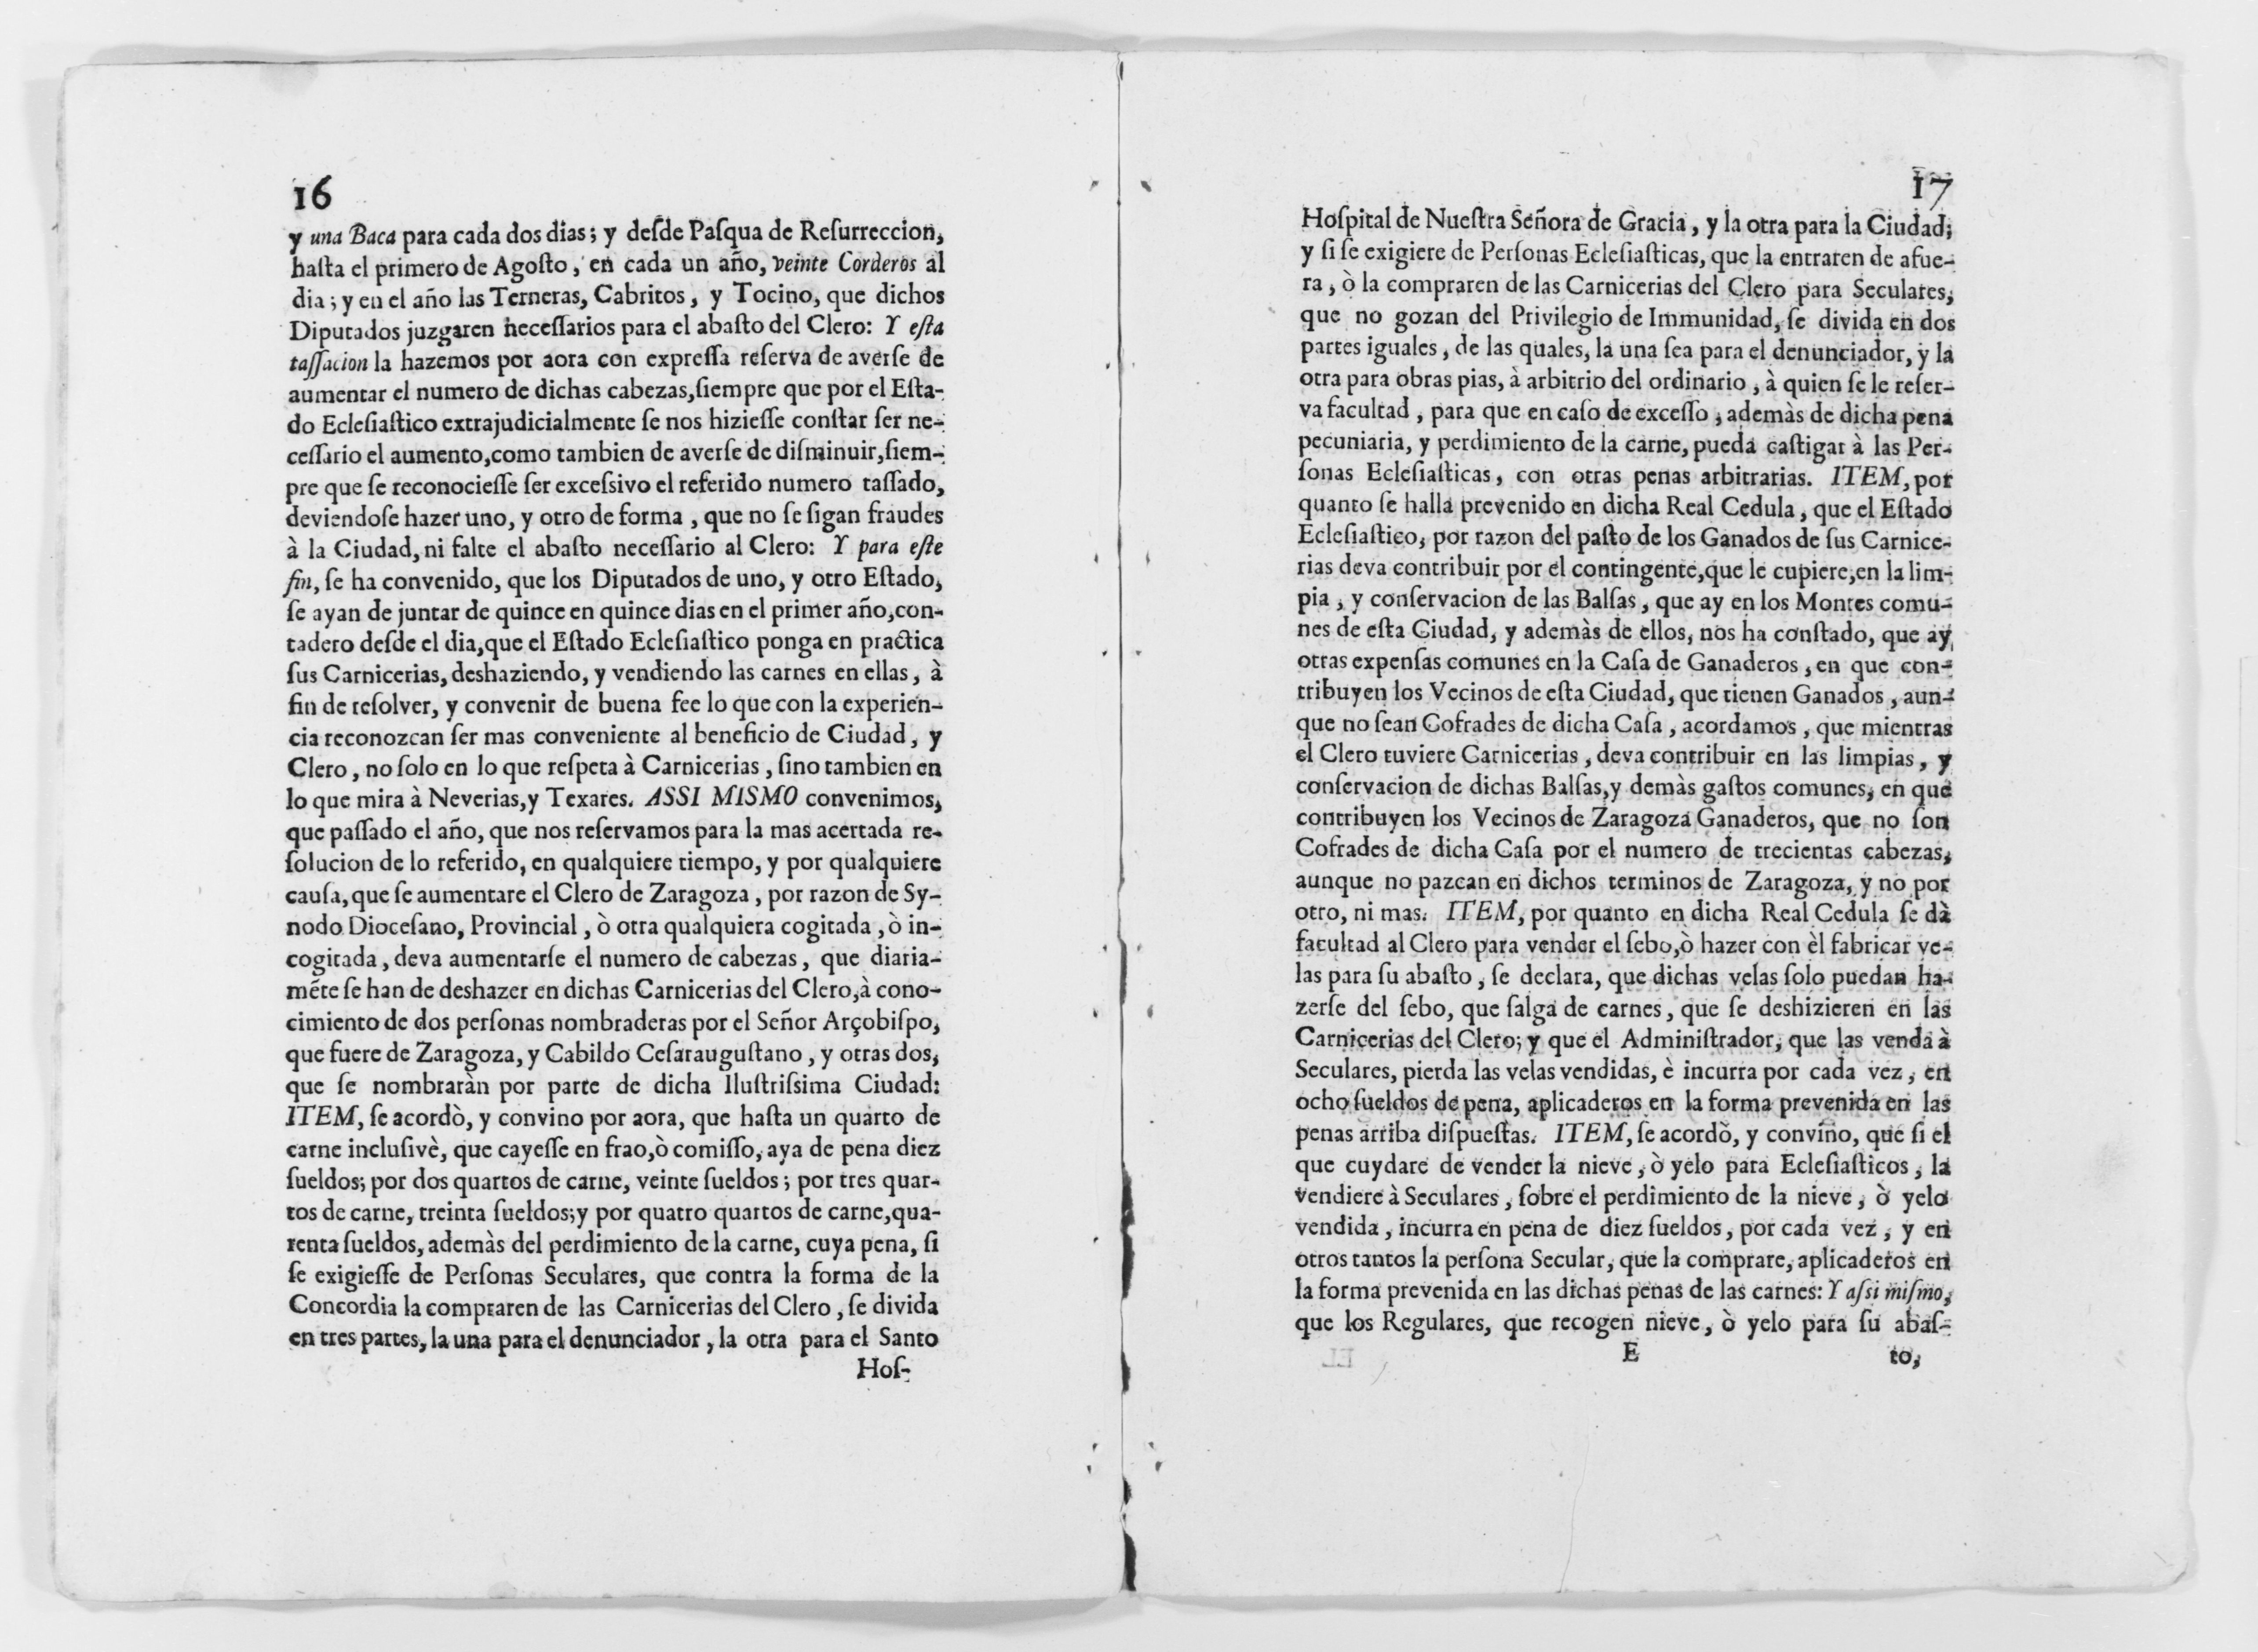 16
y una Baca para cada dos dias; y deſde Paſqua de Reſurreccion,
haſta el primero de Agoſto, en cada un año, veinte Corderos al
dia; y en el año las Terneras, Cabritos, y Tocino, que dichos
Diputados juzgaren neceſſarios para el abaſto del Clero: Y eſta
taſſacion la hazemos por aora con expreſſa reſerva de averſe de
aumentar el numero de dichas cabezas,ſiempre que por el Eſta-
do Ecleſiaſtico extrajudicialmente ſe nos hizieſſe conſtar ſer ne-
ceſſario el aumento,como tambien de averſe de diſminuir,ſiem-
pre que ſe reconocieſſe ſer exceſsivo el referido numero taſſado,
deviendoſe hazer uno, y otro de forma, que no ſe ſigan fraudes
à la Ciudad, ni falte el abaſto neceſſario al Clero: Y para eſte
fin, ſe ha convenido, que los Diputados de uno, y otro Eſtado,
ſe ayan de juntar de quince en quince dias en el primer año,con-
tadero deſde el dia,que el Eſtado Ecleſiaſtico ponga en practica
ſus Carnicerias, deshaziendo, y vendiendo las carnes en ellas, à
fin de reſolver, y convenir de buena fee lo que con la experien-
cia reconozcan ſer mas conveniente al beneficio de Ciudad, y
Clero, no ſolo en lo que reſpeta à Carnicerias, ſino tambien en
lo que mira à Neverias,y Texares. ASSI MISMO convenimos,
que paſſado el año, que nos reſervamos para la mas acertada re-
ſolucion de lo referido, en qualquiere tiempo, y por qualquiere
cauſa, que ſe aumentare el Clero de Zaragoza, por razon de Sy-
nodo Dioceſano, Provincial, ò otra qualquiera cogitada, ò in-
cogitada, deva aumentarſe el numero de cabezas, que diaria-
mẽte ſe han de deshazer en dichas Carnicerias del Clero,à cono-
cimiento de dos perſonas nombraderas por el Señor Arçobiſpo,
que fuere de Zaragoza, y Cabildo Ceſarauguſtano, y otras dos,
que ſe nombraràn por parte de dicha Iluſtriſsima Ciudad:
ITEM, ſe acordò, y convino por aora, que haſta un quarto de
carne incluſivè, que cayeſſe en frao,ò comiſſo, aya de pena diez
ſueldos; por dos quartos de carne, veinte ſueldos; por tres quar-
tos de carne, treinta ſueldos;y por quatro quartos de carne,qua-
renta ſueldos, ademàs del perdimiento de la carne, cuya pena, ſi
ſe exigieſſe de Perſonas Seculares, que contra la forma de la
Concordia la compraren de las Carnicerias del Clero, ſe divida
en tres partes, la una para el denunciador, la otra para el Santo
Hoſ-
17
Hoſpital de Nueſtra Señora de Gracia, y la otra para la Ciudad;
y ſi ſe exigiere de Perſonas Ecleſiaſticas, que la entraren de afue-
ra, ò la compraren de las Carnicerias del Clero para Seculares,
que no gozan del Privilegio de Immunidad, ſe divida en dos
partes iguales, de las quales, la una ſea para el denunciador, y la
otra para obras pias, à arbitrio del ordinario, à quien ſe le reſer-
va facultad, para que en caſo de exceſſo, ademàs de dicha pena
pecuniaria, y perdimiento de la carne, pueda caſtigar à las Per-
ſonas Ecleſiaſticas, con otras penas arbitrarias. ITEM, por
quanto ſe halla prevenido en dicha Real Cedula, que el Eſtado
Ecleſiaſtico, por razon del paſto de los Ganados de ſus Carnice-
rias deva contribuir por el contingente,que le cupiere,en la lim-
pia, y conſervacion de las Balſas, que ay en los Montes comu-
nes de eſta Ciudad, y ademàs de ellos, nos ha conſtado, que ay
otras expenſas comunes en la Caſa de Ganaderos, en que con-
tribuyen los Vecinos de eſta Ciudad, que tienen Ganados, aun-
que no ſean Cofrades de dicha Caſa, acordamos, que mientras
el Clero tuviere Carnicerias, deva contribuir en las limpias, y
conſervacion de dichas Balſas,y demàs gaſtos comunes, en que
contribuyen los Vecinos de Zaragoza Ganaderos, que no ſon
Cofrades de dicha Caſa por el numero de trecientas cabezas,
aunque no pazcan en dichos terminos de Zaragoza, y no por
otro, ni mas. ITEM, por quanto en dicha Real Cedula ſe dà
facultad al Clero para vender el ſebo,ò hazer con èl fabricar ve-
las para ſu abaſto, ſe declara, que dichas velas ſolo puedan ha-
zerſe del ſebo, que ſalga de carnes, que ſe deshizieren en las
Carnicerias del Clero; y que el Adminiſtrador, que las venda à
Seculares, pierda las velas vendidas, è incurra por cada vez, en
ocho ſueldos de pena, aplicaderos en la forma prevenida en las
penas arriba diſpueſtas. ITEM, ſe acordò, y convino, que ſi el
que cuydare de vender la nieve, ò yelo para Ecleſiaſticos, la
vendiere à Seculares, ſobre el perdimiento de la nieve, ò yelo
vendida, incurra en pena de diez ſueldos, por cada vez, y en
otros tantos la perſona Secular, que la comprare, aplicaderos en
la forma prevenida en las dichas penas de las carnes: Y aſsi miſmo,
que los Regulares, que recogen nieve, ò yelo para ſu abaſ-
E to,